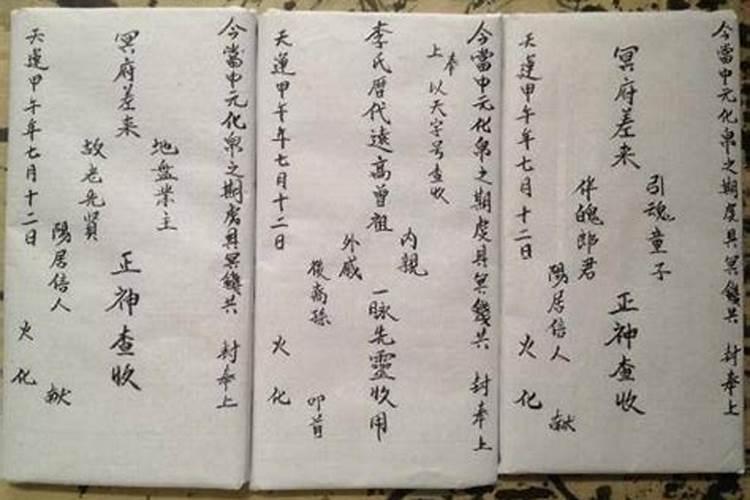 今當中元化帛之期虔具冥錢共 封奉上
引魂童子
冥府差来 正神查收
伴魄郎君
陽居信人 献
天運甲午年七月十二日 火化
今當中元化帛之期虔具冥錢共 封奉上
奉
上 以天字号查收
内親
李氏暦代遠高曾祖 一脉先靈收用
外戚
後裔孫 叩首
天運甲午年七月十二日 火化
今當中元化帛之期虔具冥錢共 封奉上
地盘業主
冥府差来 正神查收
故老先賢
陽居信人 献
天運甲午年七月十二日 火化